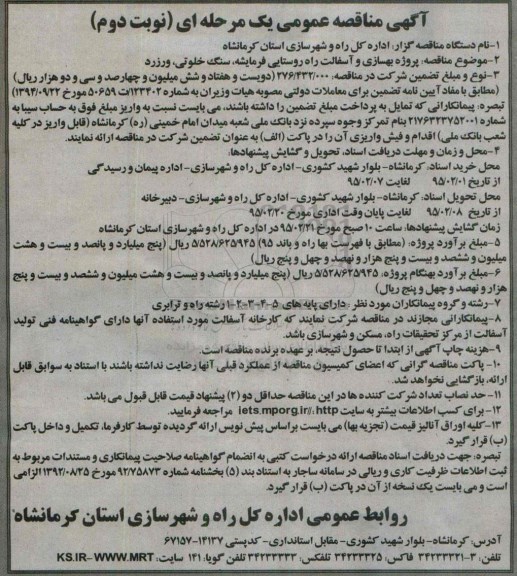 آگهی مناقصه عمومی یک مرحله ای (نوبت دوم)
۱-نام دستگاه مناقصه گزار: اداره کل راه و شهرسازی استان کرمانشاه
۲-موضوع مناقصه: پروژه بهسازی و آسفالت راه روستایی فرمایشه، سنگ خلوتی، ورزرد
۳-نوع و مبلغ تضمین شرکت در مناقصه: ۲۷۶/۴۳۲/۰۰۰ (دویست و هفتاد و شش میلیون و چهارصد و سی و دو هزار ریال)
(مطابق با مفاد آیین نامه تضمین برای معاملات دولتی مصوبه هیات وزیران به شماره ۱۲۳۴۰۲/ت ۵۰۶۵۹ مورخ ۱۳۹۴/۰۹/۲۲)
تبصره: پیمانکارانی که تمایل به پرداخت مبلغ تضمین را داشته باشند، می بایست نسبت به واریز مبلغ فوق به حساب سیبا به
شماره ۲۱۷۶۳۲۳۷۵۲۰۰۱ بنام تمرکز وجوه سپرده نزد بانک ملی شعبه میدان امام خمینی (ره) کرمانشاه (قابل واریز در کلیه
شعب بانک ملی) اقدام و فیش واریزی آن را در پاکت (الف) به عنوان تضمین شرکت در مناقصه ارائه نمایند.
۴-محل و زمان و مهلت دریافت اسناد، تحویل و گشایش پیشنهادها:
محل خرید اسناد: کرمانشاه- بلوار شهید کشوری- اداره کل راه و شهرسازی-اداره پیمان و رسیدگی
از تاریخ ۹۵/۰۲/۰۱ لغایت ۹۵/۰۲/۰۷
محل تحویل اسناد: کرمانشاه- بلوار شهید کشوری- اداره کل راه و شهرسازی- دبیرخانه
از تاریخ ۹۵/۰۲/۰۸ لغایت پایان وقت اداری مورخ ۹۵/۰۲/۲۰
زمان گشایش پیشنهادها: ساعت ۱۰ صبح مورخ ۹۵/۰۲/۲۱ در اداره کل راه و شهرسازی استان کرمانشاه
۵-مبلغ برآورد پروژه: (مطابق با فهرست بها راه و باند ۹۵) ۵/۵۲۸/۶۲۵/۹۴۵ ریال (پنج میلیارد و پانصد و بیست و هشت
میلیون و ششصد و بیست و پنج هزار و نهصد و چهل و پنج ریال)
۶-مبلغ برآورد بهنگام پروژه: ۵/۵۲۸/۶۲۵/۹۴۵ ریال (پنج میلیارد و پانصد و بیست و هشت میلیون و ششصد و بیست و پنج
هزار و نهصد و چهل و پنج ریال)
۷-رشته و گروه پیمانکاران مورد نظر دارای پایه های ۵-۴-۳-۲-۱ رشته راه و ترابری
۸-پیمانکارانی مجازند در مناقصه شرکت نمایند که کارخانه آسفالت مورد استفاده آنها دارای گواهینامه فنی تولید
آسفالت از مرکز تحقیقات راه، مسکن و شهرسازی باشد.
۹-هزینه چاپ آگهی از ابتدا تا حصول نتیجه، بر عهده برنده مناقصه است.
۱۰- پاکت مناقصه گرانی که اعضای کمیسیون مناقصه از عملکرد قبلی آنها رضایت نداشته باشند با استناد به سوابق قابل
ارائه، بازگشایی نخواهد شد.
۱۱- حد نصاب تعداد شرکت کننده ها در این مناقصه حداقل دو (۲) پیشنهاد قیمت قابل قبول می باشد.
۱۲- برای کسب اطلاعات بیشتر به سایت iets.mporg.ir//:http مراجعه فرمایید.
۱۳-کلیه اوراق آنالیز قیمت (تجزیه بها) می بایست براساس پیش نویس ارائه گردیده توسط کارفرما، تکمیل و داخل پاکت
(ب) قرار گیرد.
تبصره: جهت دریافت اسناد مناقصه ارائه درخواست کتبی به انضمام گواهینامه صلاحیت پیمانکاری و مستندات مربوط به
ثبت اطلاعات ظرفیت کاری و ریالی در سامانه ساجار به استناد بند (۵) بخشنامه شماره ۹۲/۷۵۸۷۳ مورخ ۱۳۹۲/۰۸/۲۵ الزامی
است و می بایست یک نسخه از آن در پاکت (ب) قرار گیرد.
روابط عمومی اداره کل راه و شهرسازی استان کرمانشاه
آدرس: کرمانشاه- بلوار شهید کشوری- مقابل استانداری- کدپستی ۱۴۱۳۷-۶۷۱۵۷
تلفن: ۳-۳۴۲۳۳۲۲۱ فاکس: ۳۴۲۳۳۲۲۵ تلفکس: ۳۴۲۳۳۲۳۳ تلفن گویا: ۱۴۱ سایت: KS.IR- WWW.MRT